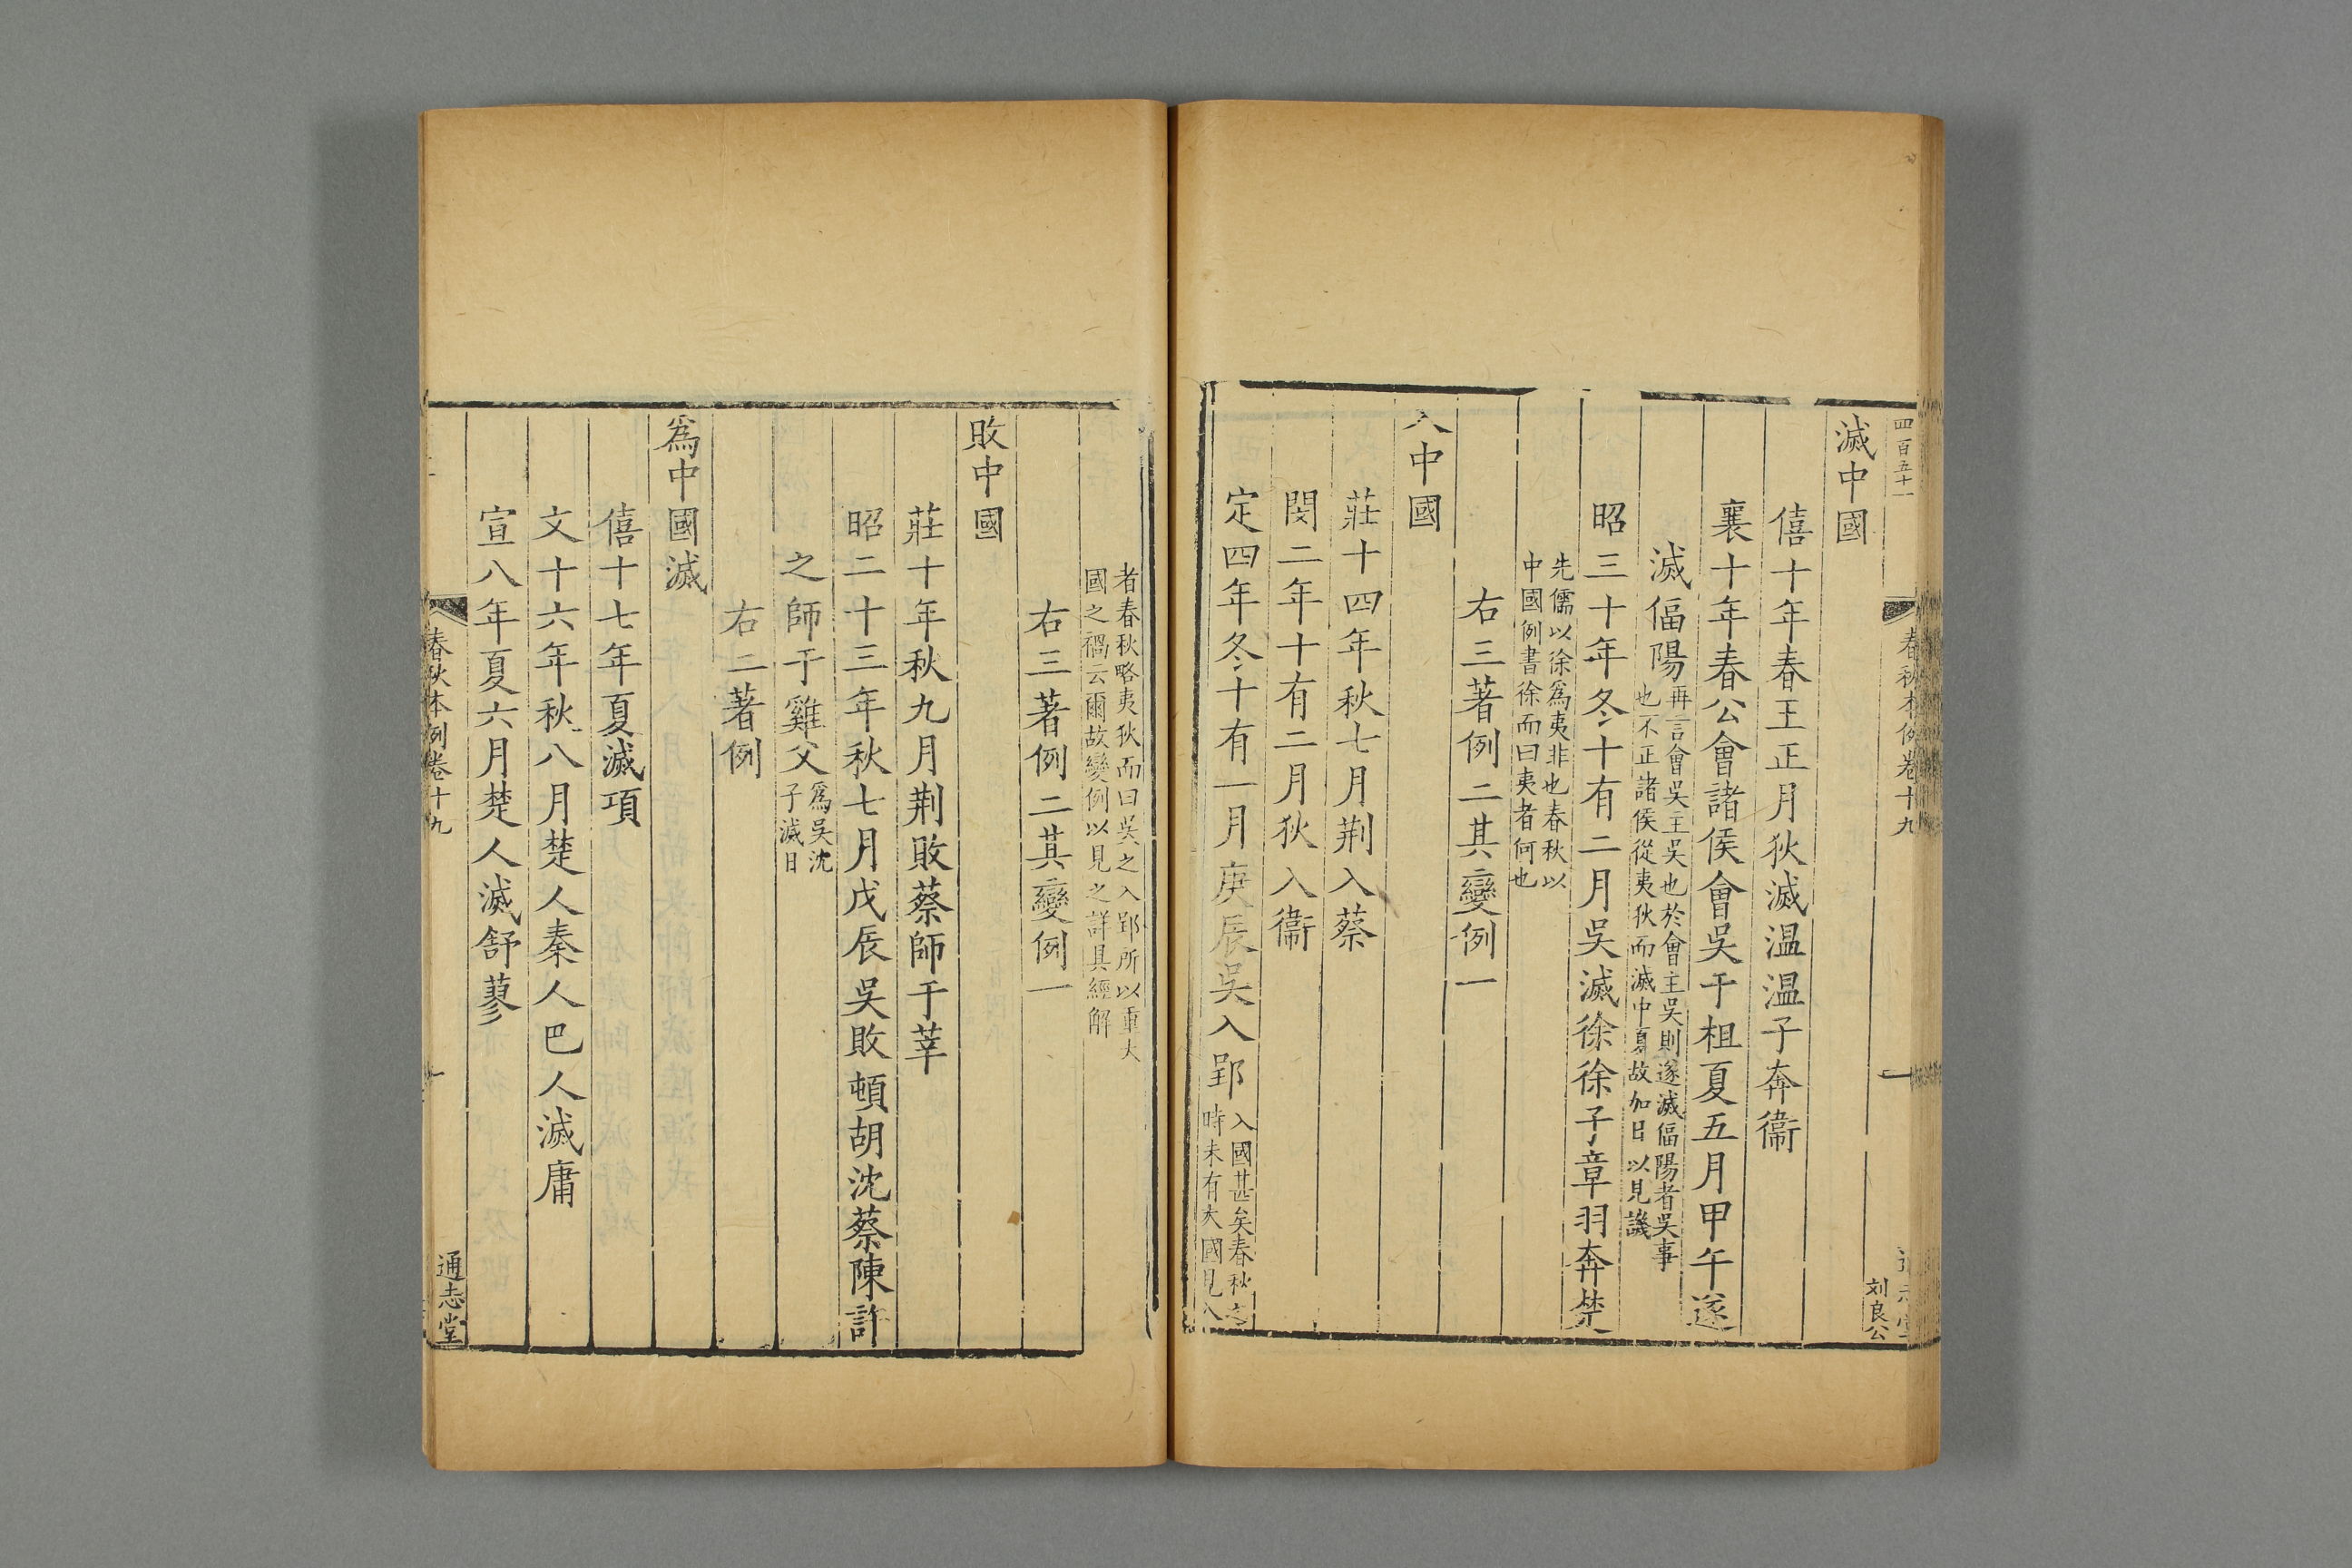 四百五十一
春秋本例卷十九
一
刘良公
滅中國
僖十年春王正月狄滅温温子奔衞
襄十年春公會諸侯會吳于柤夏五月甲午遂
滅偪陽再言會吳主吳也於會主吳則遂滅偪陽者吳事
也不正諸侯從夷狄而滅中夏故加日以見譏
昭三十年冬十有二月吳滅徐徐子章羽奔楚
先儒以徐爲夷非也春秋以
中國例書徐而曰夷者何也
右三著例二其變例一
入中國
莊十四年秋七月荆入蔡
閔二年十有二月狄入衞
定四年冬十有一月庚辰吳入郢入國甚矣春秋之
時未有大國見入
者春秋略夷狄而曰吳之入郢所以重大
國之禍云爾故變例以見之詳具經解
右三著例二其變例一
敗中國
莊十年秋九月荆敗蔡師于莘
昭二十三年秋七月戊辰吳敗頓胡沈蔡陳許
之師于雞父爲吳沈
子滅日
右二著例
爲中國滅
僖十七年夏滅項
文十六年秋八月楚人秦人巴人滅庸
宣八年夏六月楚人滅舒蓼
春秋本例卷十九
通志堂